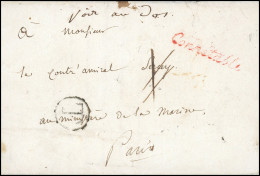 Voir au Dos.
à Monsieur
le contr'amiral
au ministère de la Marine
Paris